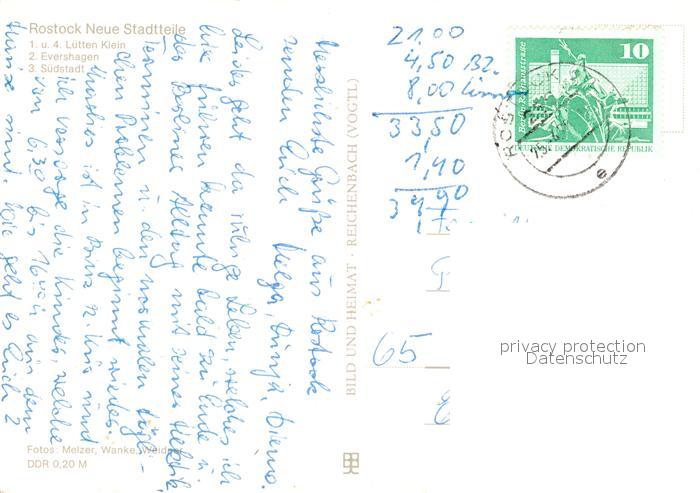 Rostock Neue Stadtteile
1. u. 4. Lütten Klein
2. Evershagen
3. Südstadt
Herzlichste Grüße aus Rostock
senden Euch
Helga,
Leider geht das ruhige Leben, welches ich
hier führen konnte bald zu Ende u.
der Berliner Alltag mit seiner Hektik,
Terminen u. den normalen tägli-
chen Problemen beginnt wieder.
ist in Binz z. Kur und
ich versorge die Kinder, welche
von 6.30 bis 16 Uhr aus dem
Hause sind. Wie geht es Euch?
Fotos: Melzer, Wanke, Weidner
DDR 0,20 M
BILD UND HEIMAT · REICHENBACH (VOGTL)
21.00
4,50 Bz.
8,00
33,50
1,40
65
10
DEUTSCHE DEMOKRATISCHE REPUBLIK
ROSTOCK
e
privacy protection
Datenschutz